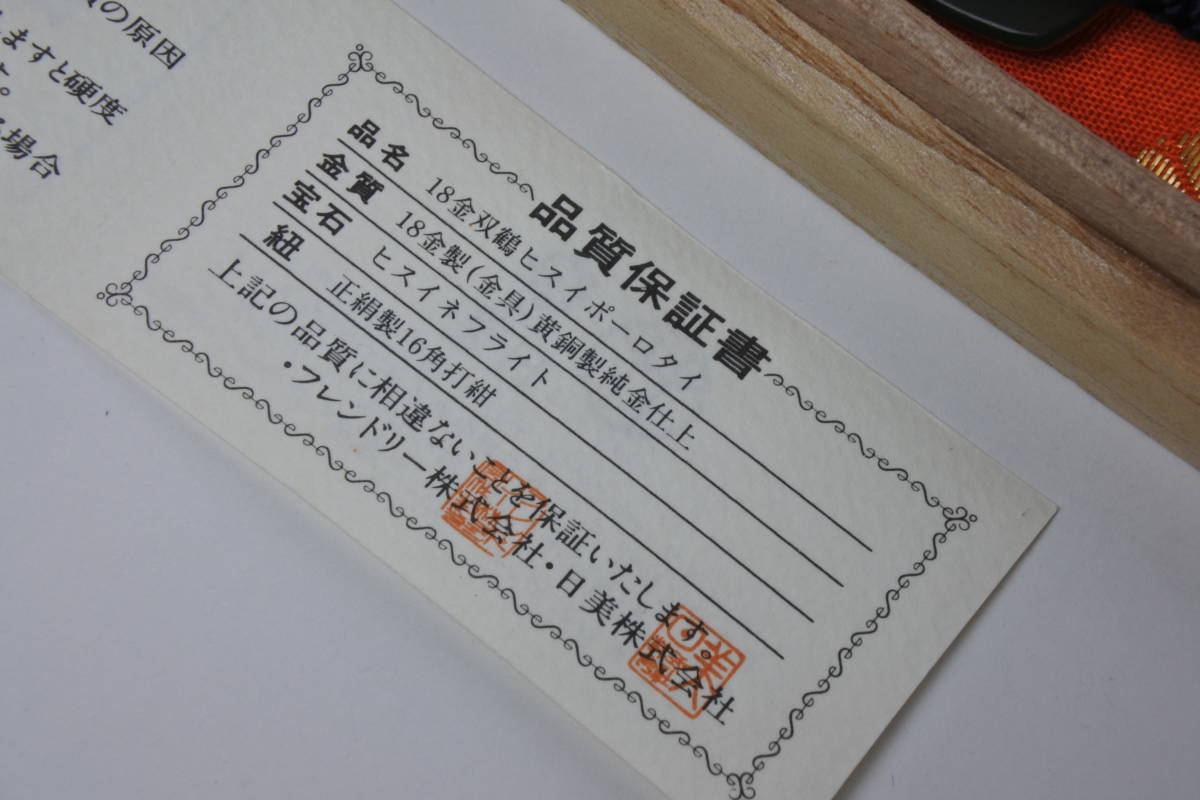 の原因
ますと硬度
。
場合
品質保証書
品名 18金双鶴ヒスイポーロタイ
金質 18金製(金具)黄銅製純金仕上
宝石 ヒスイネフライト
紐 正絹製16角打紺
上記の品質に相違ないことを保証いたします。
・フレンドリー株式会社・日美株式会社